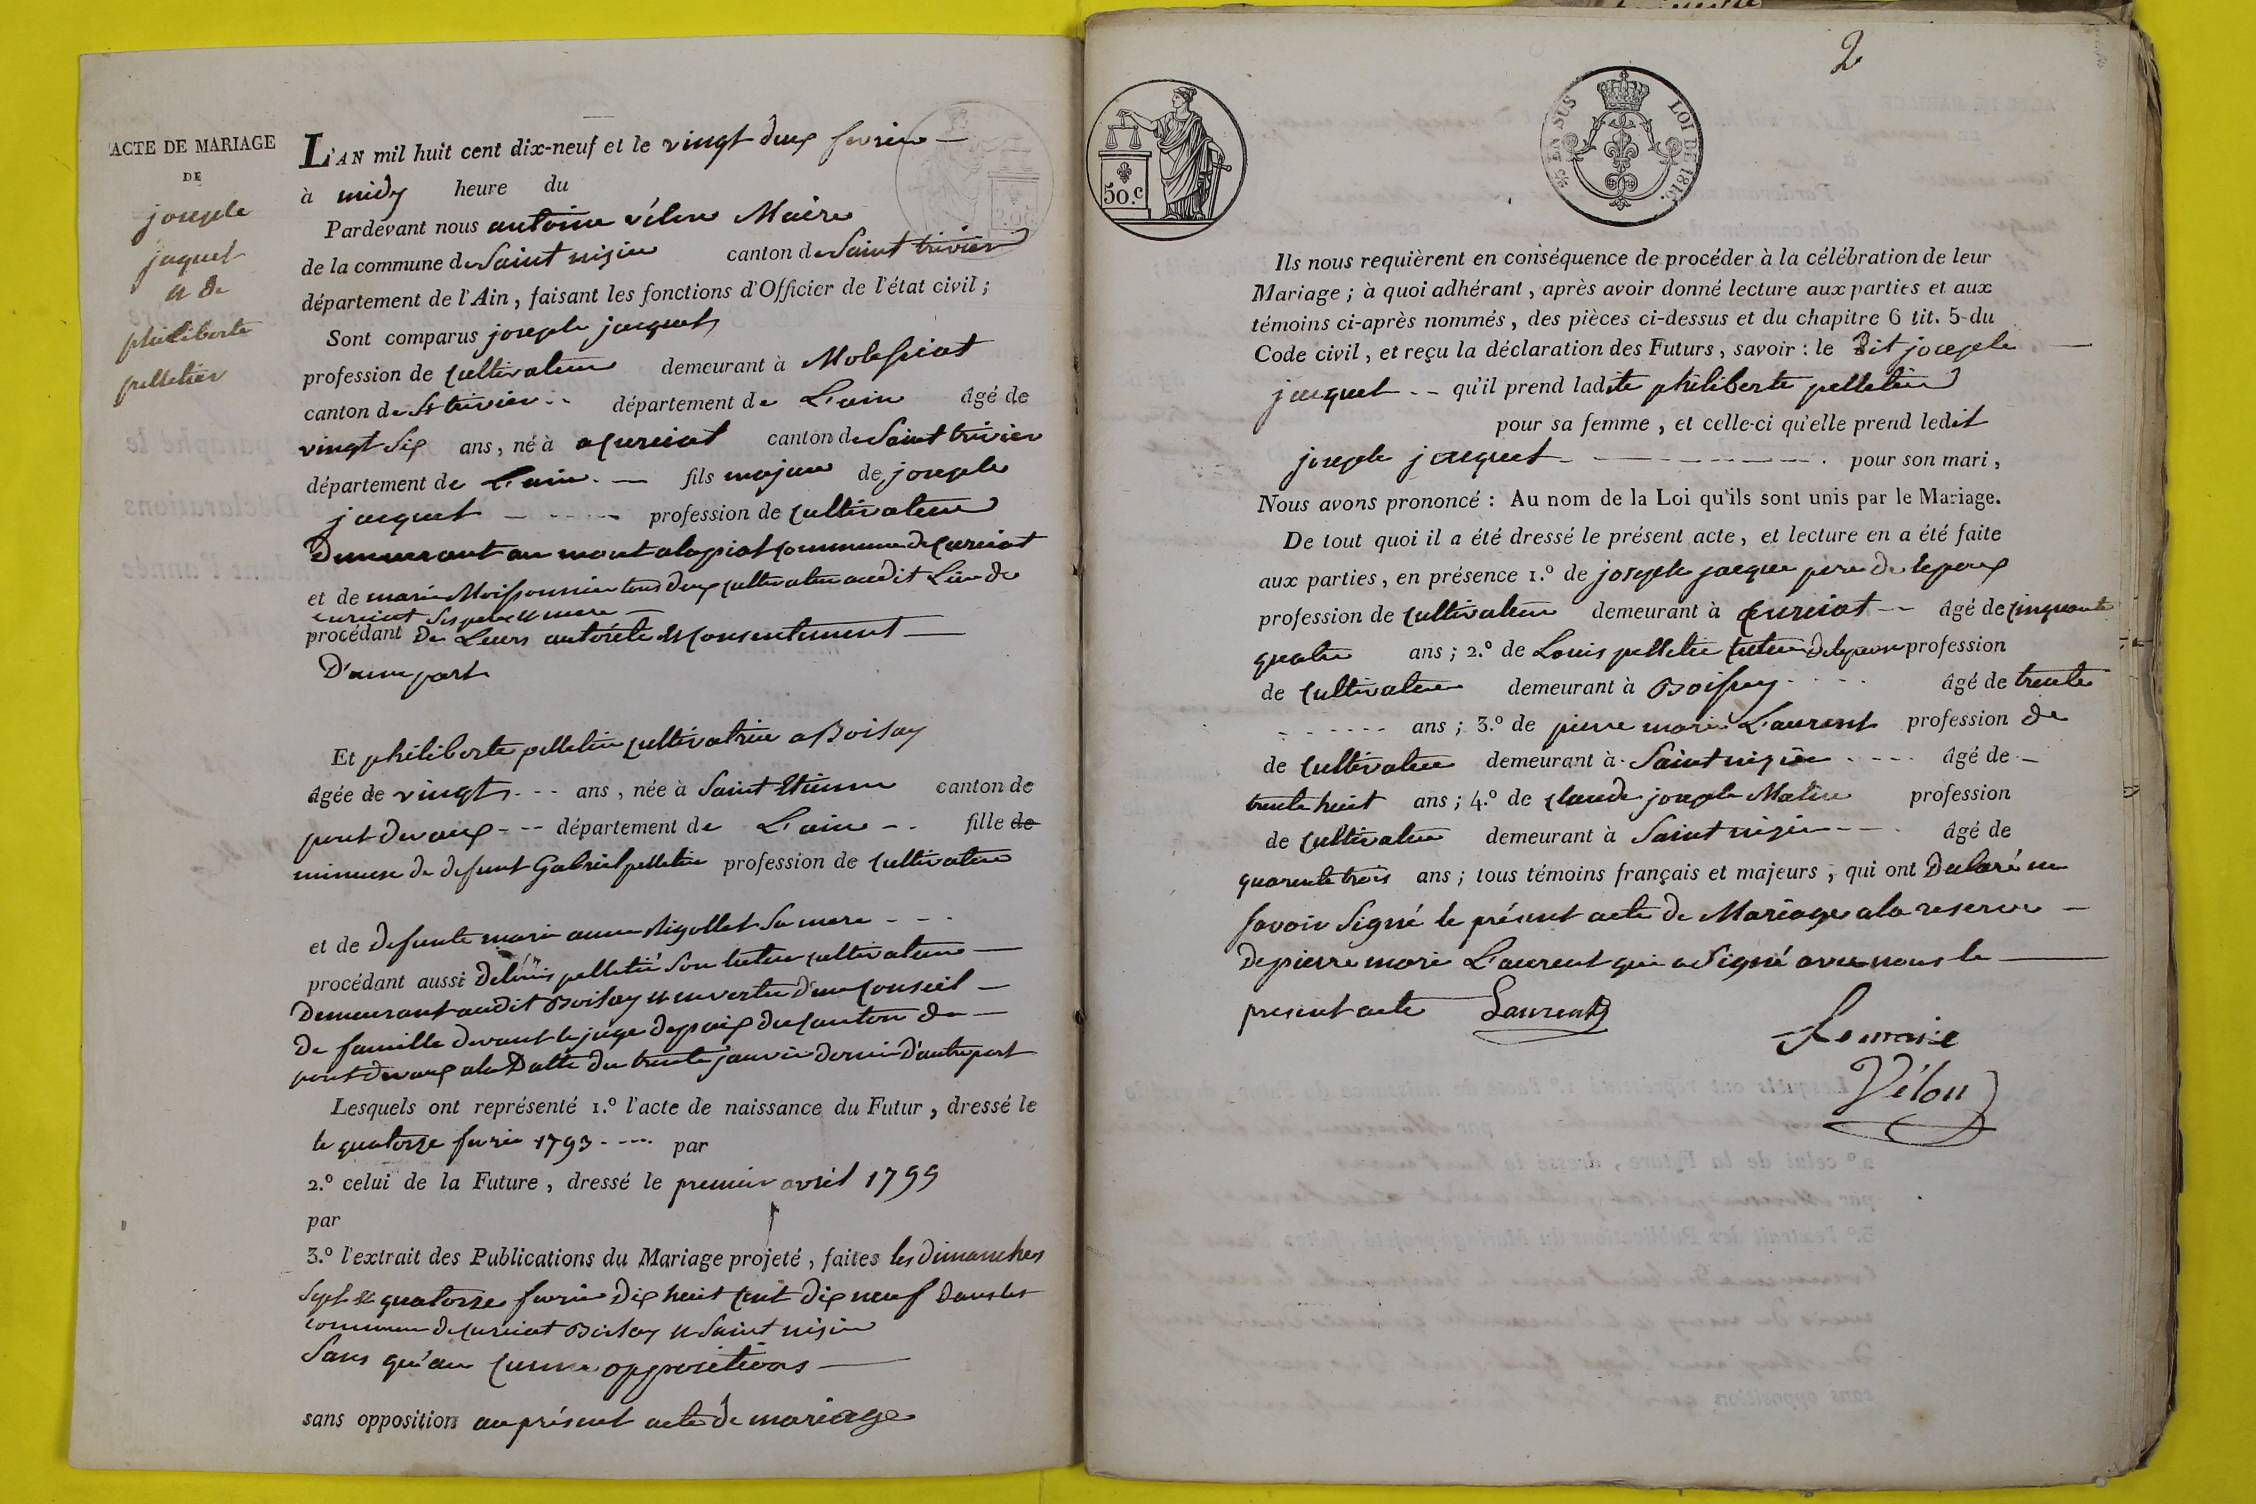 ACTE DE MARIAGE
DE
joseph
jaquet
et de
philiberte
pelletier
L'AN mil huit cent dix-neuf et le vingt deux fevrier
à midy heure du
Pardevant nous antoine vélon Maire
de la commune de Saint nizier canton de Saint trivier
département de l'Ain, faisant les fonctions d'Officier de l'état civil;
Sont comparus joseph jacquet
profession de cultivateur demeurant à
canton de St trivier département de L'ain âgé de
vingt six ans, né à a Curciat canton de Saint trivier
département de L'ain fils majeur de joseph
jacquet profession de cultivateur
Demeurant au mont commune de Curciat
et de marie Moissonnier tous deux cultivateur audit Lieu de
curciat ses pere et mere
procédant De Leurs autorité et consentement
D'aune part
Et philiberte pelletier cultivatrice a Boissey
âgée de vingt ans, née à Saint Etienne canton de
pont de vaux département de L'ain fille de
mineure de defunt Gabriel pelletier profession de cultivateur
et de defunte marie anne Rigollet sa mere
procédant aussi de Louis pelletié son tuteur cultivateur
Demeurant audit Boissey et en vertu d'un Conseil
de famille devant le juge de paix du canton de
pont de vaux a la Datte du trente janvier dernier d'autre part
Lesquels ont représenté 1.º l'acte de naissance du Futur, dressé le
le quatorze fevrier 1793 par
2.º celui de la Future, dressé le premier avril 1799
par
3.º l'extrait des Publications du Mariage projeté, faites les dimanches
Sept et quatorze fevrier dix huit cent dix neuf dans les
commune de curciat Boissey et Saint nizier
Sans qu'au cunne oppositions
sans opposition au présent acte de mariage
2
50.c
¾ EN SUS LOI DE 1816.
Ils nous requièrent en conséquence de procéder à la célébration de leur
Mariage; à quoi adhérant, après avoir donné lecture aux parties et aux
témoins ci-après nommés, des pièces ci-dessus et du chapitre 6 tit. 5 du
Code civil, et reçu la déclaration des Futurs, savoir: le dit joseph
jacquet qu'il prend ladite philiberte pelletier
pour sa femme, et celle-ci qu'elle prend ledit
joseph jacquet pour son mari,
Nous avons prononcé: Au nom de la Loi qu'ils sont unis par le Mariage.
De tout quoi il a été dressé le présent acte, et lecture en a été faite
aux parties, en présence 1.º de joseph jacque pere de lepoux
profession de cultivateur demeurant à Curciat âgé de cinquante
quatre ans; 2.º de Louis pelletier tuteur de lepouse profession
de cultivateur demeurant à Boissey âgé de trente
ans; 3.º de pierre marie Laurent profession de
de cultivateur demeurant à Saint nizier âgé de
trente huit ans; 4.º de claude joseph profession
de cultivateur demeurant à Saint nizier âgé de
quarente trois ans; tous témoins français et majeurs, qui ont Declaré ne
savoir Signé le présent acte de Mariage a la reserve
De pierre marie Laurent qui a Signé avec nous le
present acte Laurent
Le maire
Vélon